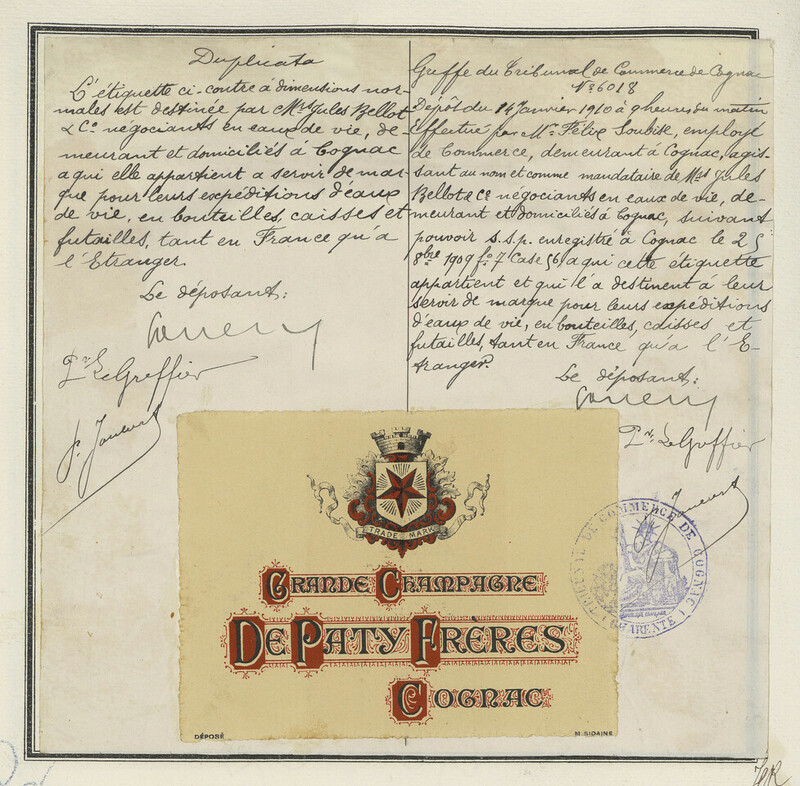 Duplicata
L'étiquette ci-contre à dimensions nor-
males est destinée par Mrs Jules Bellot
& Co négociants en eaux de vie, de-
meurant et domiciliés à Cognac
a qui elle appartient a servir de mar-
que pour leurs expéditions d'eaux
de vie, en bouteilles, caisses et
futailles, tant en France qu'a
l'Etranger.
Le déposant:
Pr Le Greffier
Greffe du Tribunal de Commerce de Cognac
No 6018
Dépôt du 14 Janvier 1910 à 9 heures du matin
Effectué par Mr Félix Soubise, employé
de Commerce, demeurant à Cognac, agis-
sant au nom et comme mandataire de Mrs Jules
Bellot & Co négociants en eaux de vie, de-
meurant et domiciliés à Cognac, suivant
pouvoir s.s.p. enregistré à Cognac le 25
8bre 1909 fo 7 Case 56) a qui cette étiquette
appartient et qui l'a destinent à leur
servir de marque pour leurs expéditions
d'eaux de vie, en bouteilles, caisses et
futailles, tant en France qu'a l'E-
tranger.
Le déposant:
Pr Le Greffier
TRADE MARK
GRANDE CHAMPAGNE
DE PATY FRÈRES
COGNAC
DÉPOSÉ
M. SIDAINE
TRIBUNAL DE COMMERCE DE COGNAC
(CHARENTE)